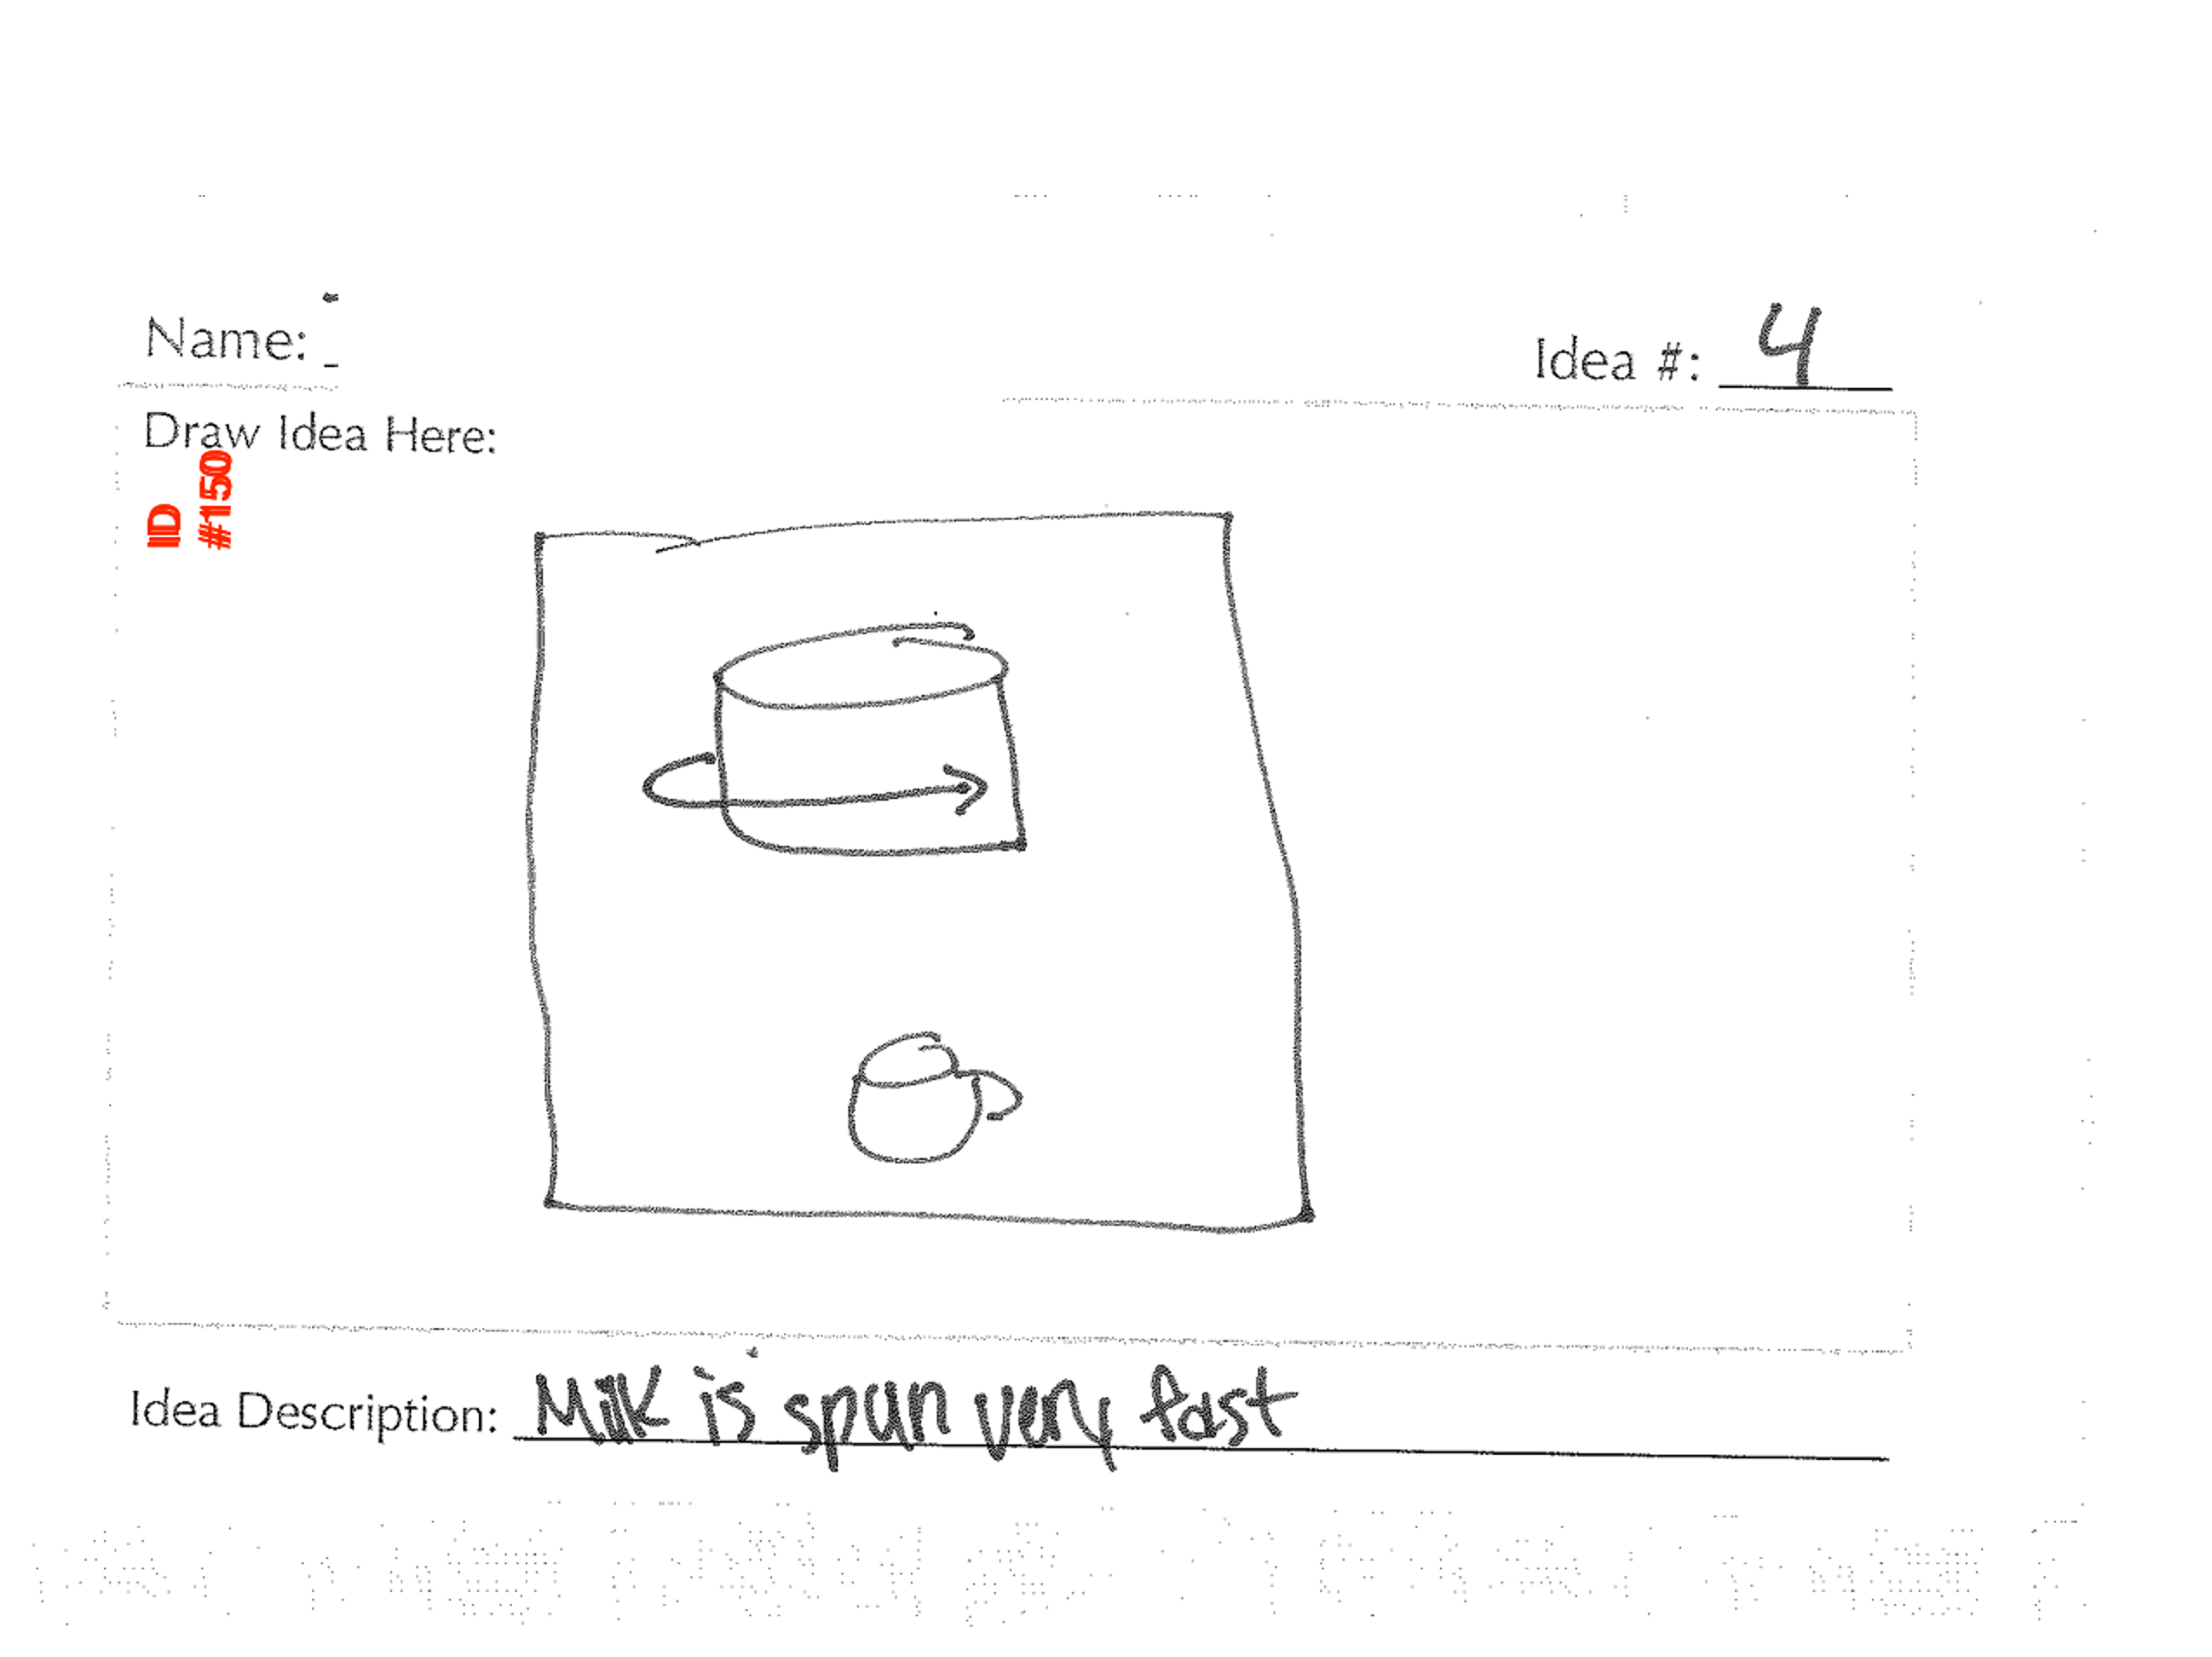 Name:
Idea #: 4
Draw Idea Here:
ID
#150
Idea Description: Milk is spun very fast